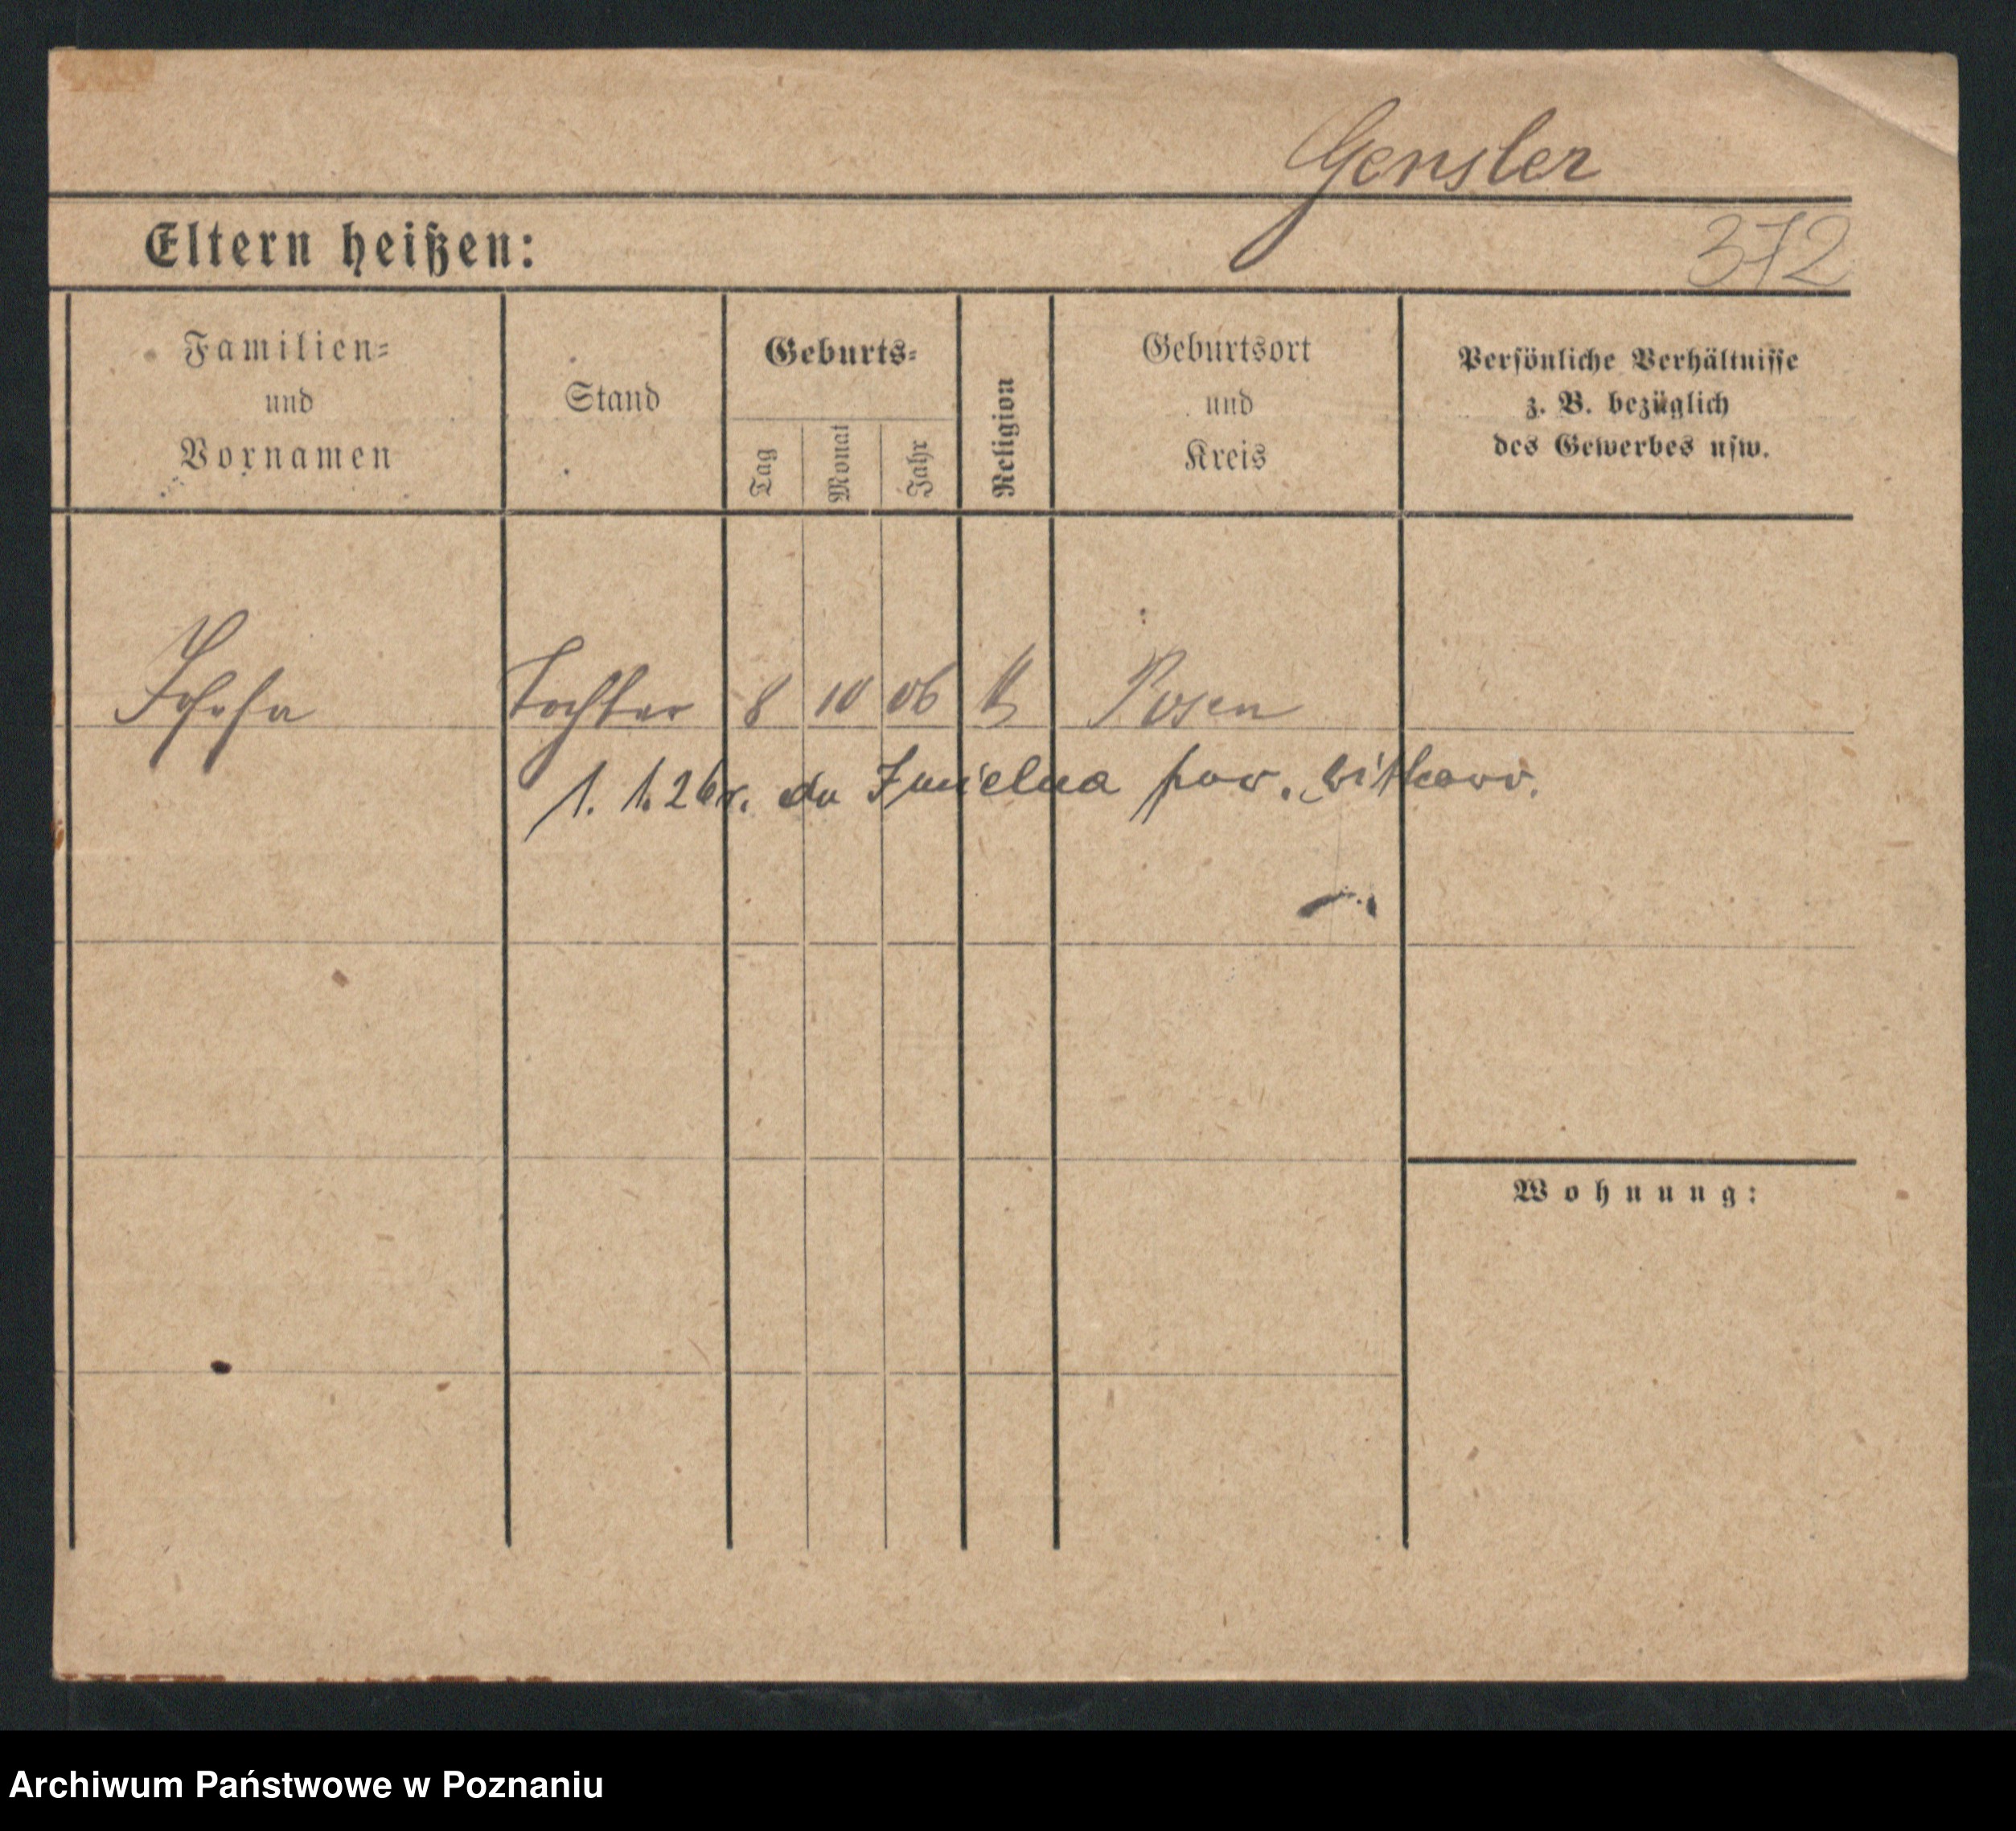 Gensler
Eltern heißen:
372
Familien-
und
Vornamen
Stand
Geburts-
Tag
Monat
Jahr
Religion
Geburtsort
und
Kreis
Persönliche Verhältnisse
z. B. bezüglich
des Gewerbes usw.
Tochter 8 10 06 k Posen
1. 1. 26 r. do Imielna pow. witkow.
Wohnung:
Archiwum Państwowe w Poznaniu